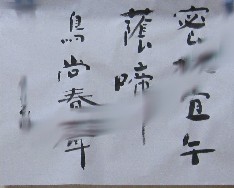 密宜午
蔭啼
鳥尚春